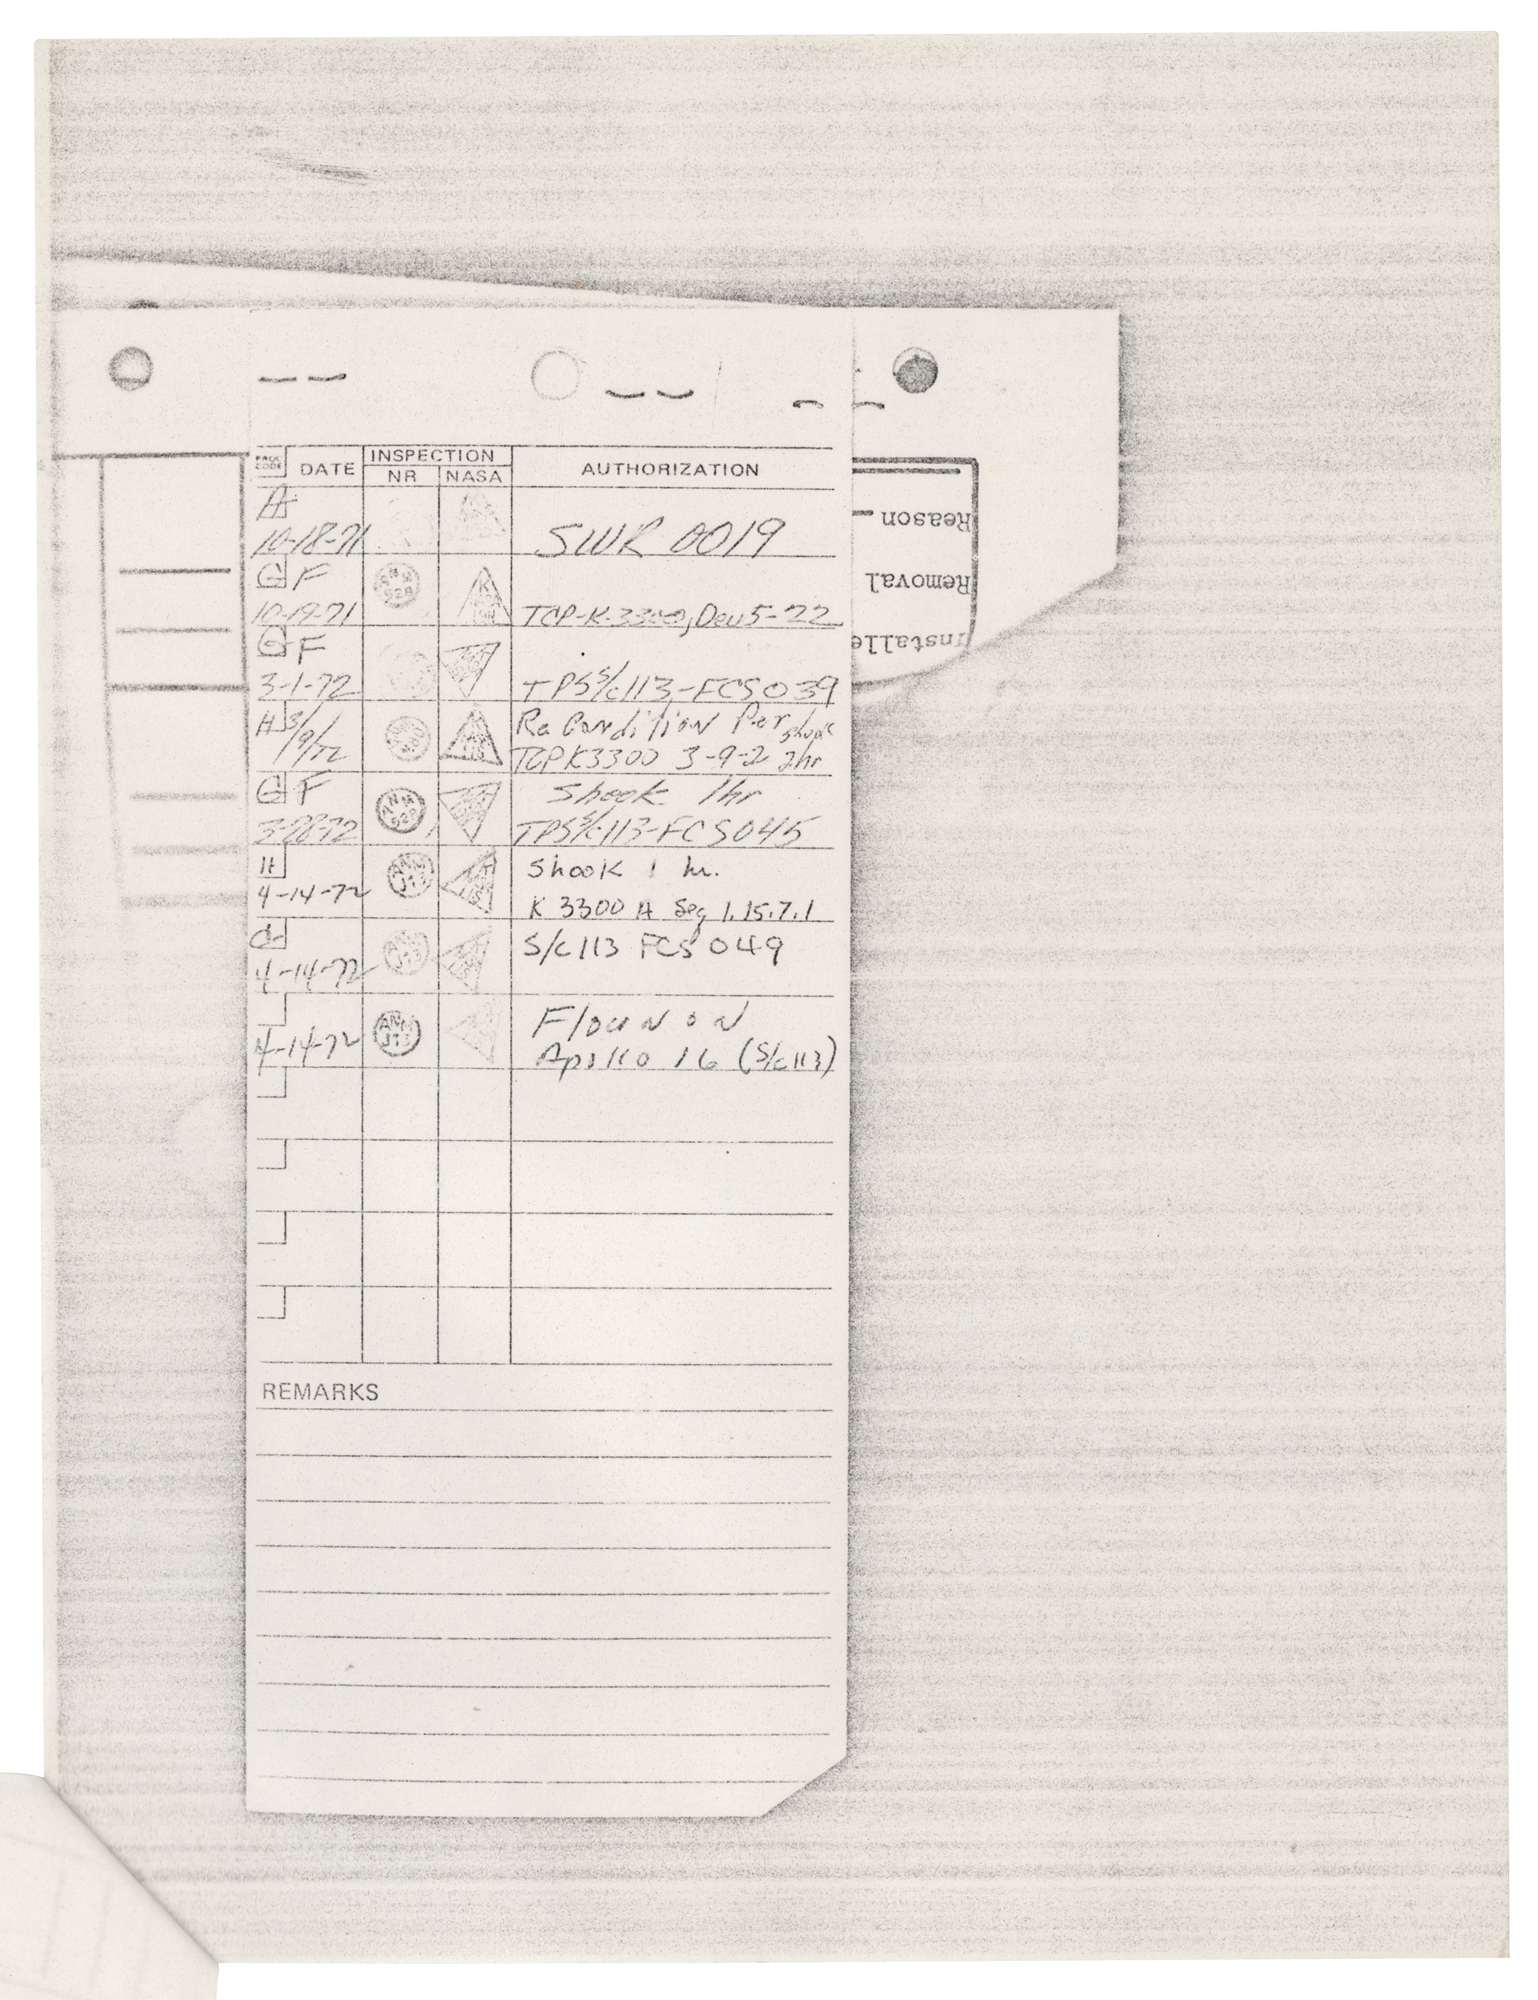 DATE INSPECTION AUTHORIZATION
NR NASA
A
10-18-71 SWR 0019
G F
10-19-71 TCP-K-3300, Dev 5-22
G F
3-1-72 TPS S/C 113-FCS 039
H 3/9/72 Re Condition Per
TCP K3300 3-9-2 2hr
G F Shook 1hr
3-28-72 TPS S/C 113-FCS 045
H Shook 1 hr.
4-14-72 K 3300 A Seq 1.15.7.1
S/C 113 FCS 049
4-14-72
Flown on
4-14-72 Apollo 16 (S/C 113)
REMARKS
Reason
Removal
Installe